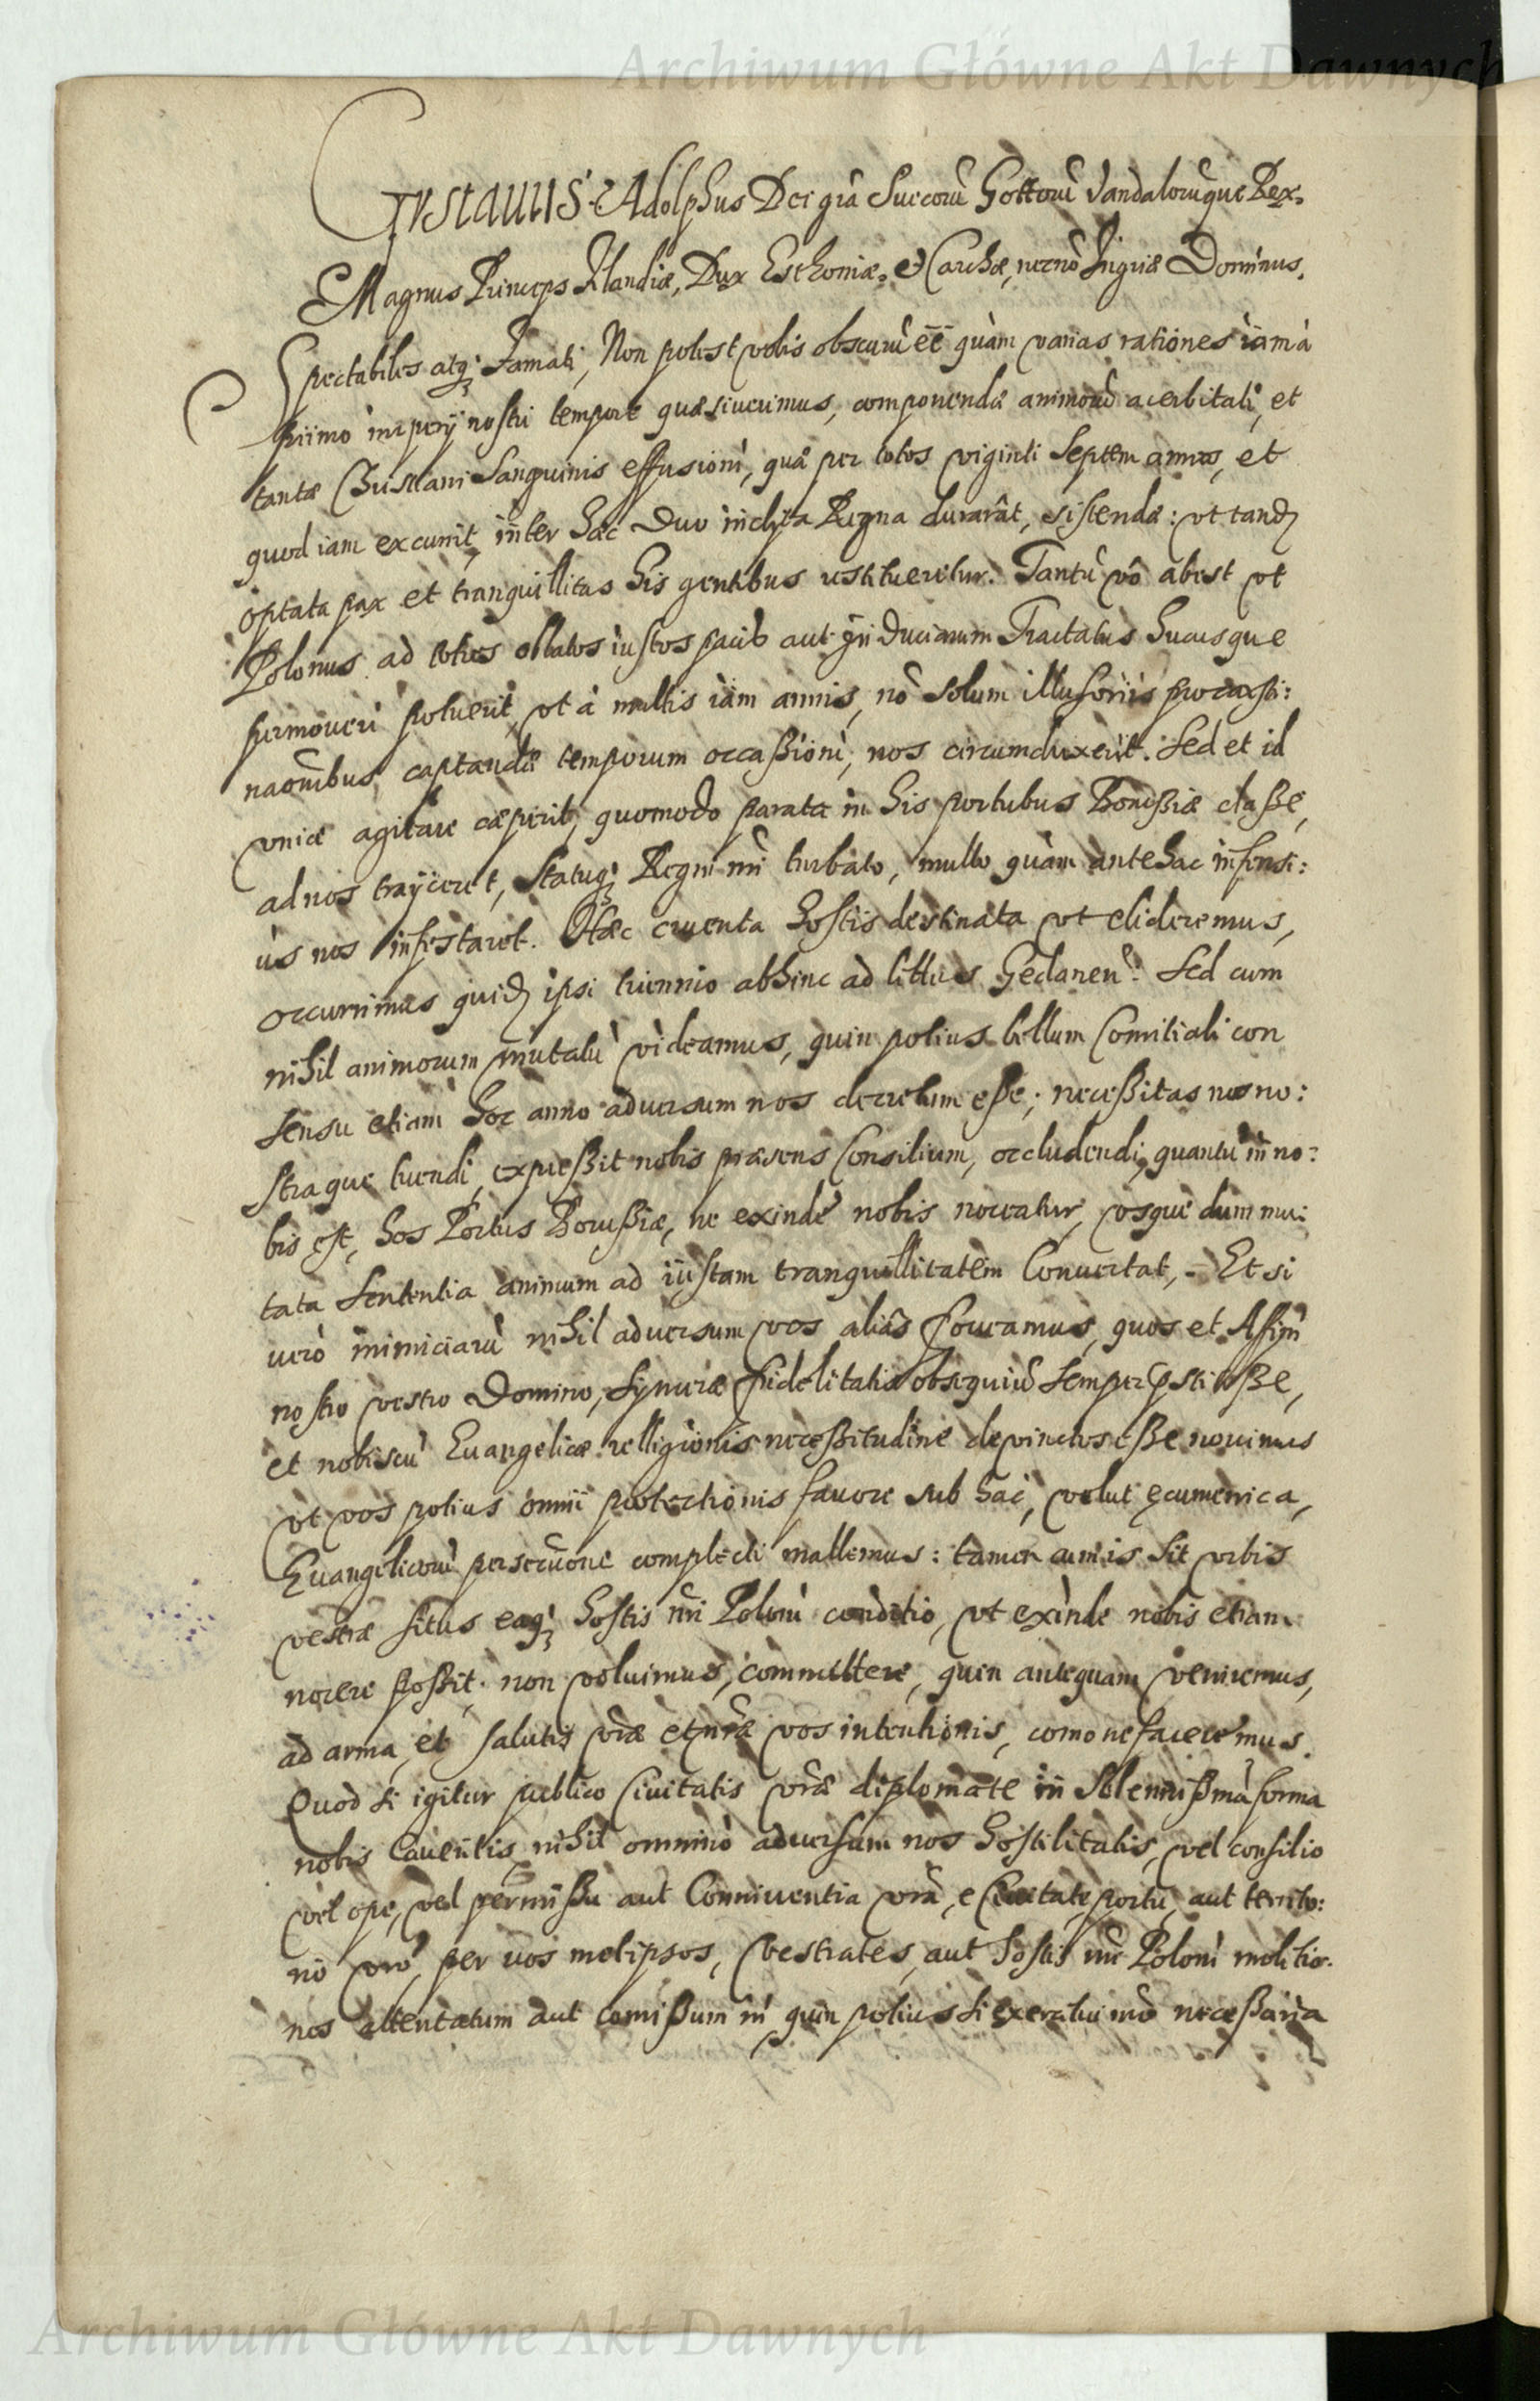 Archiwum Główne Akt Dawnych
Gustauus Adolphus Dei grã Suecorũ Gottorũ Vandalorũque Rex.
Magnus Princeps Finlandiæ, Dux Esthoniæ, et Carelæ, necnõ Ingriæ Dominus.
Spectabiles atq; Famati, Non potest vobis obscurũ eẽ quàm varias rationes iàm à
primo imperÿ nostri tempore quæsiuerimus, componendæ animorũ acerbitati, et
tantæ Christiani Sanguinis effusioni, quæ per totos viginti Septem annos, et
quod iam excurrit, inter hæc duo inclyta Regna durarãt, sistendæ: vt tand
optata pax et tranquillitas his gentibus restitueretur. Tantũ võ abest vt
Polonus ad toties oblatos iustos pacis aut Induciarum Tractatus hucusque
permoueri potuerit, vt à multis iàm annis, nõ solum illusoriis procrasti:
naõnibus, captandæ temporum occaßioni, nos circumduxerit. Sed et id
vnicè agitare cæperit, quomodo parata in his portubus Borußiæ claße,
ad nos traÿceret, statuq; Regni nr̃i turbato, multo quàm antehac infensi:
ùs nos infestaret. Hæc cruenta hostis destinata vt elideremus,
occurrimus quid ipsi triennio abhinc ad littus Gedanen: Sed cum
nihil animorum mutatũ videamus, quin potius bellum Comitiali con
sensu etiam hoc anno aduersum nos decretum eße; neceßitas nos no:
straque tuendi, expreßit nobis præsens Consilium, occludendi, quantũ in no:
bis est, hos Portus Borußiæ, ne exinde nobis noceatur, vsque dum mu:
tata Sententia animum ad iustam tranquillitatem Conuertat,- Et si
verò inimiciarũ nihil aduersum vos aliàs foueamus, quos et Affini
nostro vestro Domino, synceræ fidelitatis obsequiũ semper pstitiße,
et nobiscũ Euangelicæ relligionis neceßitudine devinctos eße nouimus
vt vos potius omni protectionis fauore sub hac, velut ęcumenica,
Euangelicorũ perseruõne complecti mallemus: tamen cum is sit vrbis
vestræ situs eaq; hostis nr̃i Poloni conditio, vt exinde nobis etiam
nocere poßit, non voluimus, committere, quin antequam veniremus,
ad arma, et salutis vr̃æ et nr̃æ vos intentionis, comonefaceremus.
Quòd si igitur publico Ciuitatis vr̃æ diplomate in Solennißmã forma
nobis Caueritis, nihil omninò aduersum nos hostilitatis, vel consilio
vel ope, vel permißu aut Conniuentia vr̃a, e Ciuitate, portu, aut territo:
rio vr̃o, per vos metipsos, vestrates, aut hostis nr̃i Poloni molitio-
nes attentatum aut comißum iri quin potius si exercitui nr̃o neceßaria
Archiwum Główne Akt Dawnych